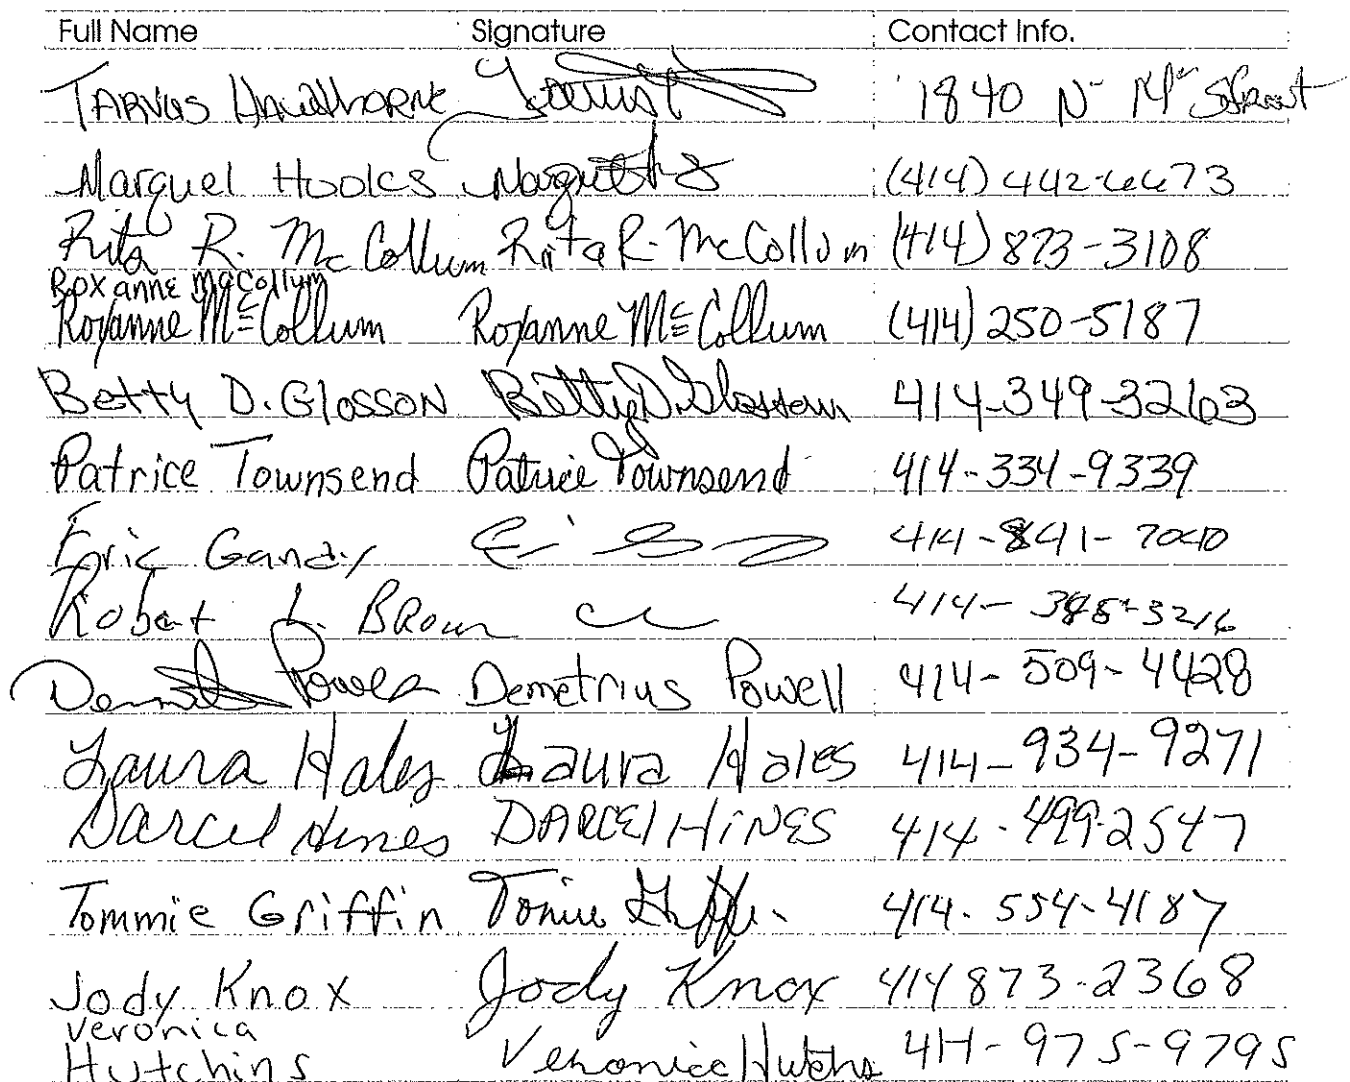 Full Name Signature Contact Info.
TARVUS HAWTHORNE 1840 N.
Marquel Hooks (414) 442-6673
Rita R. McCollum Rita R. McCollum (414) 873-3108
Roxanne McCollum
Roxanne McCollum Roxanne McCollum (414) 250-5187
Betty D. Glosson Betty D. Glosson 414-349-3263
Patrice Townsend Patrice Townsend 414-334-9339
Eric Gandy 414-841-7040
Robert L. Brown
Powell Demetrius Powell 414-509-4428
Laura Hales Laura Hales 414-934-9271
Darcel Hines DARCEl HiNES 414-499-2547
Tommie Griffin 414-554-4187
Jody Knox Jody Knox 414 873-2368
Veronica
Hutchins Veronica 414-975-9795